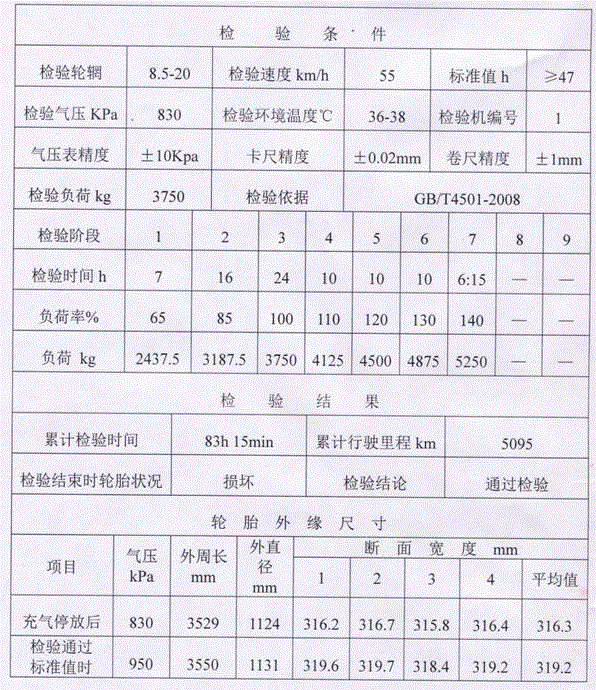 检 验 条 件
检验轮辋 8.5-20 检验速度 km/h 55 标准值 h ≥47
检验气压 KPa 830 检验环境温度℃ 36-38 检验机编号 1
气压表精度 ±10Kpa 卡尺精度 ±0.02mm 卷尺精度 ±1mm
检验负荷 kg 3750 检验依据 GB/T4501-2008
检验阶段 1 2 3 4 5 6 7 8 9
检验时间 h 7 16 24 10 10 10 6:15 — —
负荷率% 65 85 100 110 120 130 140 — —
负荷 kg 2437.5 3187.5 3750 4125 4500 4875 5250 — —
检 验 结 果
累计检验时间 83h 15min 累计行驶里程 km 5095
检验结束时轮胎状况 损坏 检验结论 通过检验
轮 胎 外 缘 尺 寸
项目 气压 kPa 外周长 mm 外直径 mm 断 面 宽 度 mm
1 2 3 4 平均值
充气停放后 830 3529 1124 316.2 316.7 315.8 316.4 316.3
检验通过标准值时 950 3550 1131 319.6 319.7 318.4 319.2 319.2